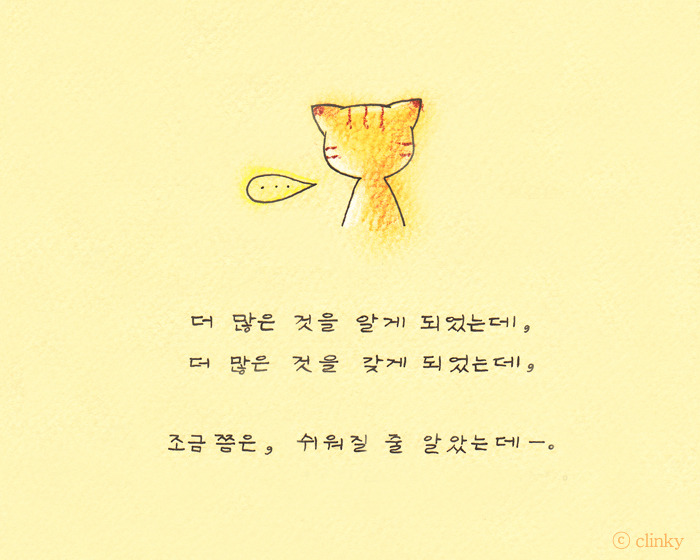 ...
더 많은 것을 알게 되었는데,
더 많은 것을 갖게 되었는데,
조금쯤은, 쉬워질 줄 알았는데ㅡ.
ⓒ clinky